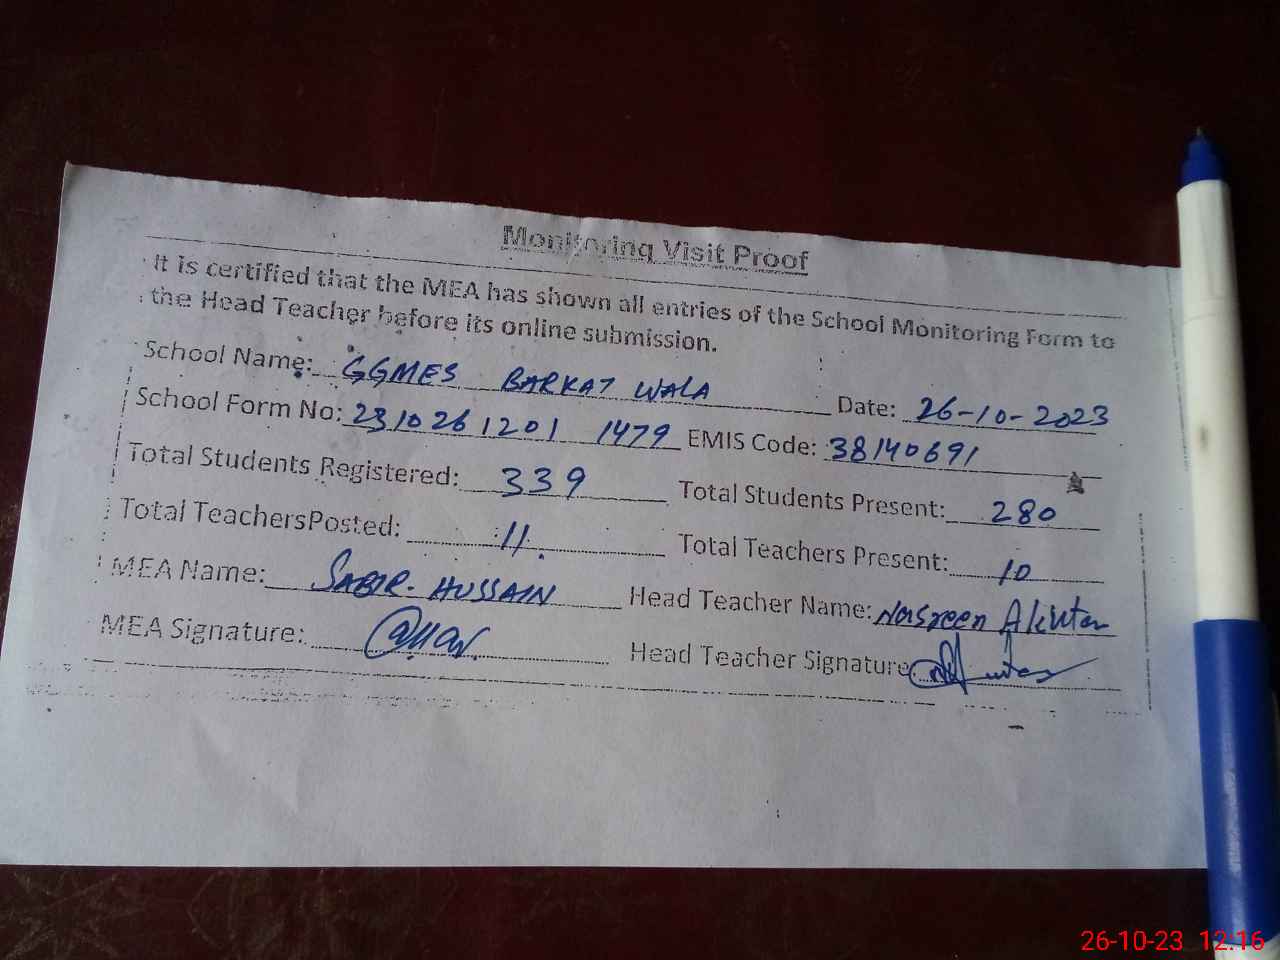 Monitoring Visit Proof
It is certified that the MEA has shown all entries of the School Monitoring Form to
the Head Teacher before its online submission.
School Name: GGMES BARKAT WALA Date: 26-10-2023
School Form No: 2310261201 1479 EMIS Code: 38140691
Total Students Registered: 339 Total Students Present: 280
Total TeachersPosted: 11. Total Teachers Present: 10
MEA Name: SABIR. HUSSAIN Head Teacher Name: Nasreen Akhtar
MEA Signature: Head Teacher Signature
26-10-23 12:16